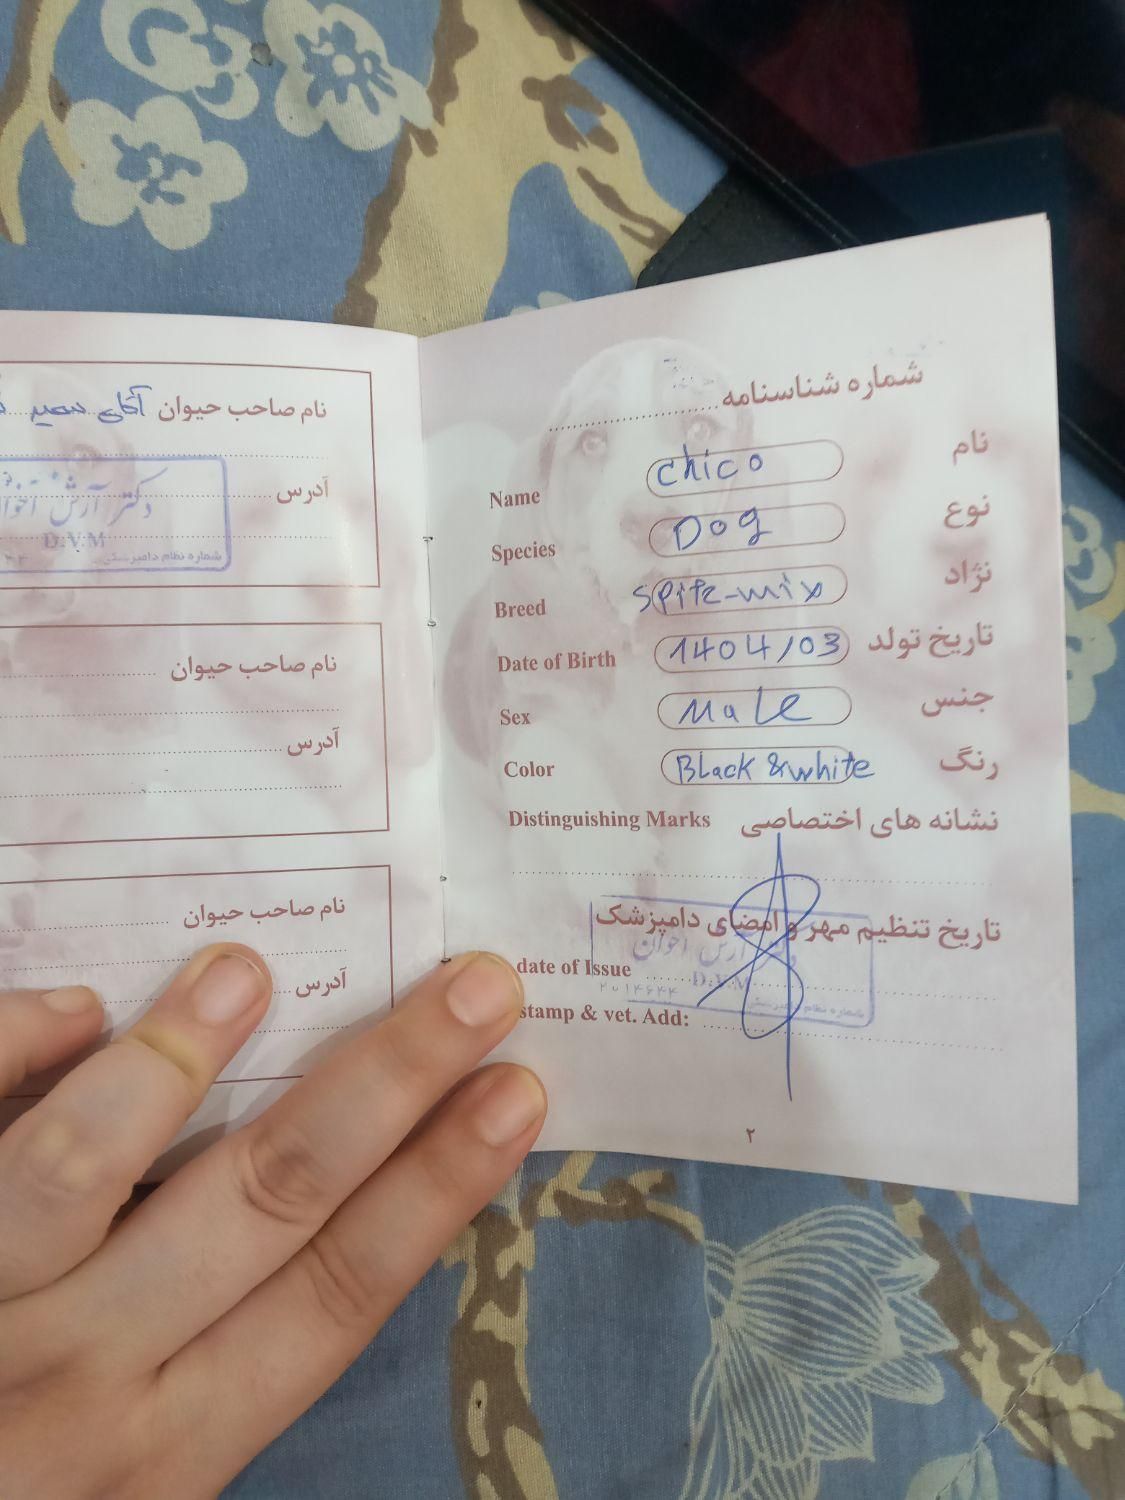 نام صاحب حیوان آقای
آدرس
دکتر آرش
D.V.M
شماره نظام دامپزشکی
نام صاحب حیوان
آدرس
نام صاحب حیوان
آدرس
شماره شناسنامه
Name chico نام
Species Dog نوع
Breed Spitz-mix نژاد
Date of Birth 1404/03 تاریخ تولد
Sex Male جنس
Color Black & white رنگ
Distinguishing Marks نشانه های اختصاصی
تاریخ تنظیم مهر و امضای دامپزشک
دکتر آرش اخوان
date of Issue
D.V.M
شماره نظام دامپزشکی
stamp & vet. Add:
۲